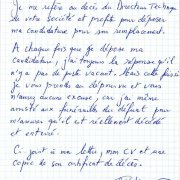 Je me réfère au décès du Directeur Technique
de votre Société et profite pour déposer
ma candidature pour son remplacement.
A chaque fois que je dépose ma
candidature, j'ai toujours la réponse qu'il
n'y a pas de poste vacant. Mais cette fois-ci
je vous prends au dépourvu et vous
n'avez aucune excuse, car j'ai même
assisté aux funérailles du défunt pour
m'assurer qu'il est réellement décédé
et enterré.
Ci-joint à ma lettre, mon CV et une
copie de son certificat de décès.